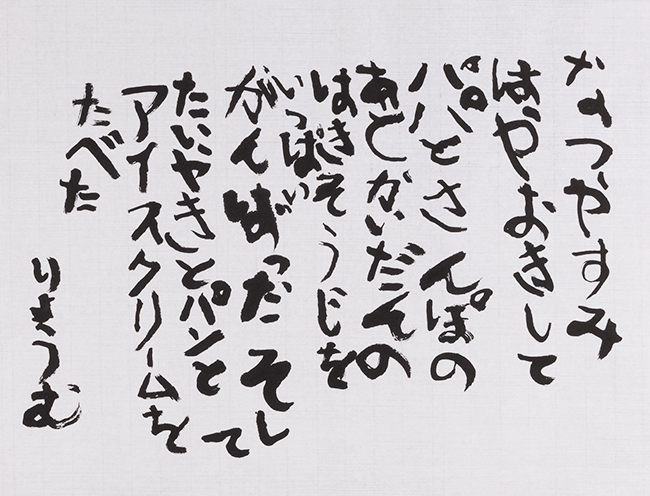 なつやすみ
はやおきして
パパとさんぽの
あとかいだんの
はきそうじを
いっぱい
がんばった そして
たいやきとパンと
アイスクリームを
たべた
りさうむ